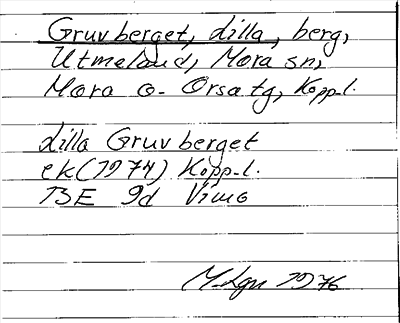 Gruvberget, Lilla, berg,
Utmeland, Mora sn,
Mora o. Orsa tg, Kopp. l.
Lilla Gruvberget
ek (1974) Kopp. l.
13E 9d Vimo
1976